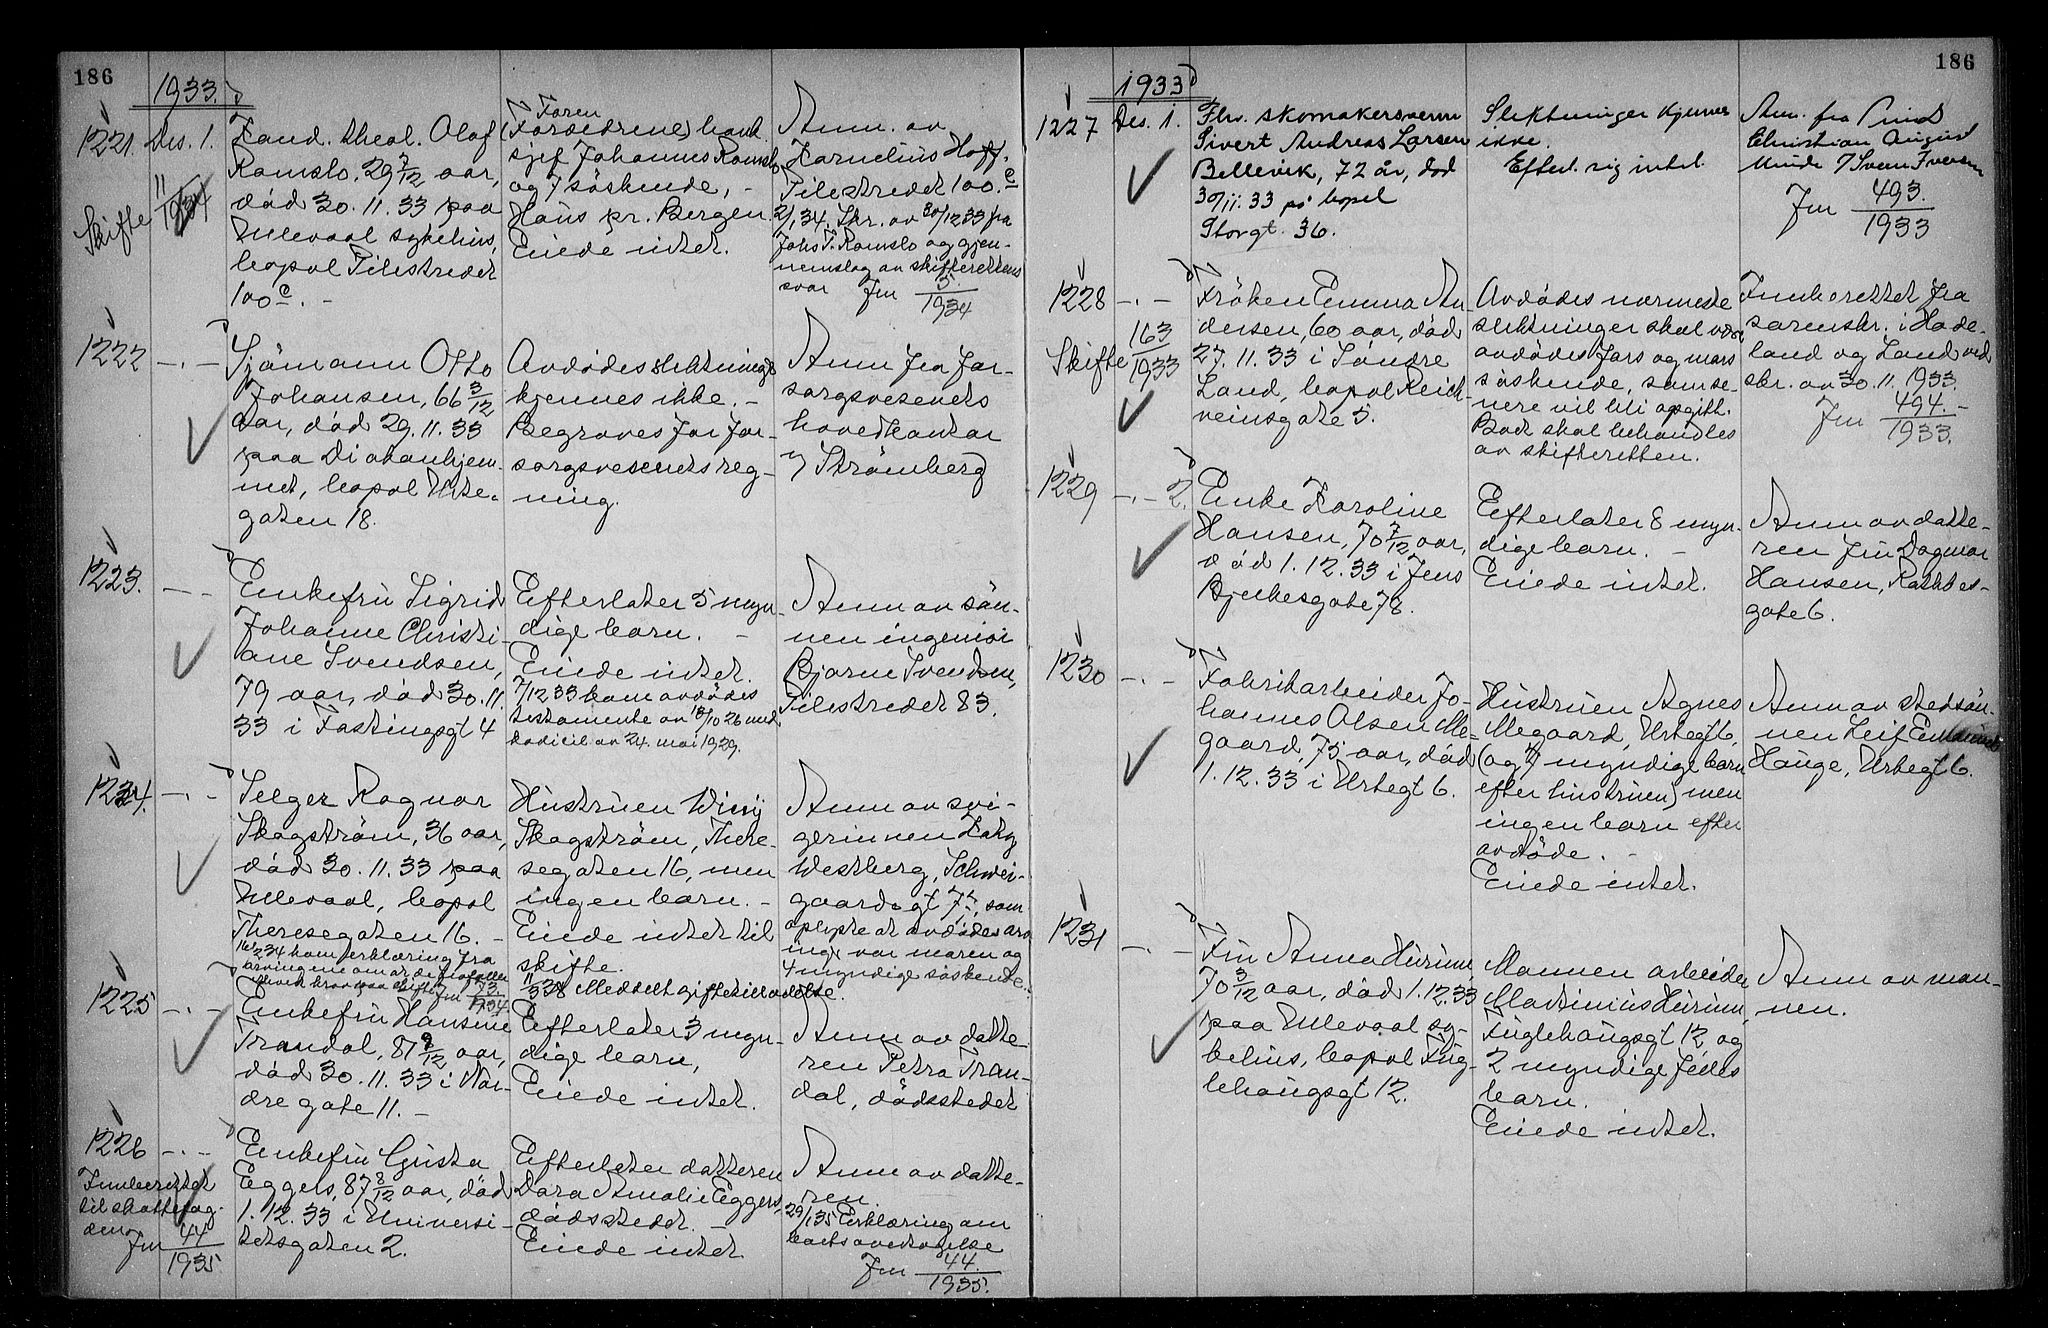 186
1933.
1221. Des. 1.
Skifte 11/1934
Kand. theol. Olaf
Romslo, 29 7/12 aar,
död 30.11.33 paa
Ullevaal sykehus,
bopol Pilestredet
100 c. -
Faren
(Forældrene) bank
sjef Johannes Romslo
og 7 söskende, -
Haus pr. Bergen.
Eiede intet.
Anm. av
Kornelius Hoff,
Pilestredet 100 c
2/1 34. Skr. av 30/12 33 fra
Johs T. Romslo og gjen-
nemslag av skifterettens
svar Jnr 5/1934
1222 -.-
Sjömann Otto
Johansen, 66 3/12
aar, död 29.11.33
paa Diakonhjem-
met, bopol Urte-
gaten 18.
Avdödes slektninger
kjennes ikke. -
Begraves for for-
sorgsvesenets reg-
ning.
Anm fra for-
sorgsvesenets
hovedkontor
v/ Strömberg
1223. -.-
Enkefru Sigrid
Johanne Christi-
ane Svendsen,
79 aar, död 30.11
33 i Fastingsgt 4
Efterlater 5 myn-
dige barn. -
Eiede intet.
7/12 33 kom avdödes
testamente av 18/10 26 med
kodicil av 24. mai 1929.
Anm av sön-
nen ingeniör
Bjarne Svendsen,
Pilestredet 83.
1224. -.-
Selger Ragnar
Skogström, 36 aar,
död 30.11.33 paa
Ullevaal, bopol
Theresegaten 16. -
34 kom erklæring fra
arvingene om at de frafaller
krav paa skifte Jnr 73/1934
Hustruen Wivij
Skogström, There-
segaten 16, men
ingen barn. -
Eiede intet til
skifte.
Anm av svi-
gerinnen Katy
Westberg, Schwei-
gaardsgt 77, som
oplyste at avdödes arv
inger var moren og
4 myndige söskende.
1225 -.-
Enkefru Hansine
Trandal, 87 9/12 aar,
död 30.11.33 i Nor-
dre gate 11. -
Efterlater 3 myn-
dige barn,
Eiede intet.
Anm av datte-
ren Petra Tran-
dal, dödsstedet
1226 -.-
Innberettet
til skattefog-
den Jnr 44/1935
Enkefru Gusta
Eggers, 87 8/12 aar, död
1.12.33 i Universi-
tetsgaten 2.
Efterlater datteren
Dora Amalie Eggers,
dödsstedet. -
Eiede intet
Anm av datte-
ren.
29/1 35 Erklæring om
boets overtagelse
Jnr 44/1935.
186
1933
1227 Des. 1.
Fhv. skomakersvenn
Sivert Andreas Larsen
Bellevik, 72 år, död
30/11.33 på bopel
Storgt. 36.
Slektninger kjennes
ikke.
Efterl. sig intet
Anm. fra
Christian August
v/ Svein Iversen
Jnr 493./1933
1228 -.-
Skifte 163/1933
Fröken Emma An
dersen, 60 aar, död
27.11.33 i Söndre
Land, bopol Reich-
weinsgate 5.
Avdödes nærmeste
slektninger skal være
avdödes fars og mors
söskende, som se-
nere vil bli opgitt.
Boet skal behandles
av skifteretten.
Innberettet fra
sorenskr. i Hade-
land og Land ved
skr. av 30.11.1933.
Jnr 494./1933.
1229 -.- 2.
Enke Karoline
Hansen, 70 7/12 aar,
död 1.12.33 i Jens
Bjelkesgate 78.
Efterlater 8 myn-
dige barn. -
Eiede intet.
Anm av datte-
ren fru Dagmar
Hansen, Rathkes-
gate 6.
1230 -.-
Fabrikarbeider Jo-
hannes Olsen Me-
gaard, 75 aar, död
1.12.33 i Urtegt 6.
Hustruen Agnes
Megaard, Urtegt 6,
(og 7) myndige barn
efter hustruen) men
ingen barn efter
avdöde. -
Eiede intet.
Anm av stedsön-
nen Leif
Hauge, Urtegt 6.
1231 -.-
Fru Anna Hurum
70 3/12 aar, död 1.12.33
paa Ullevaal sy-
kehus, bopol Fug-
lehaugsgt 12.
Mannen arbeider
Martinius Hurum,
Fuglehaugsgt 12 og
2 myndige fælles
barn.
Eiede intet.
Anm av man-
nen.